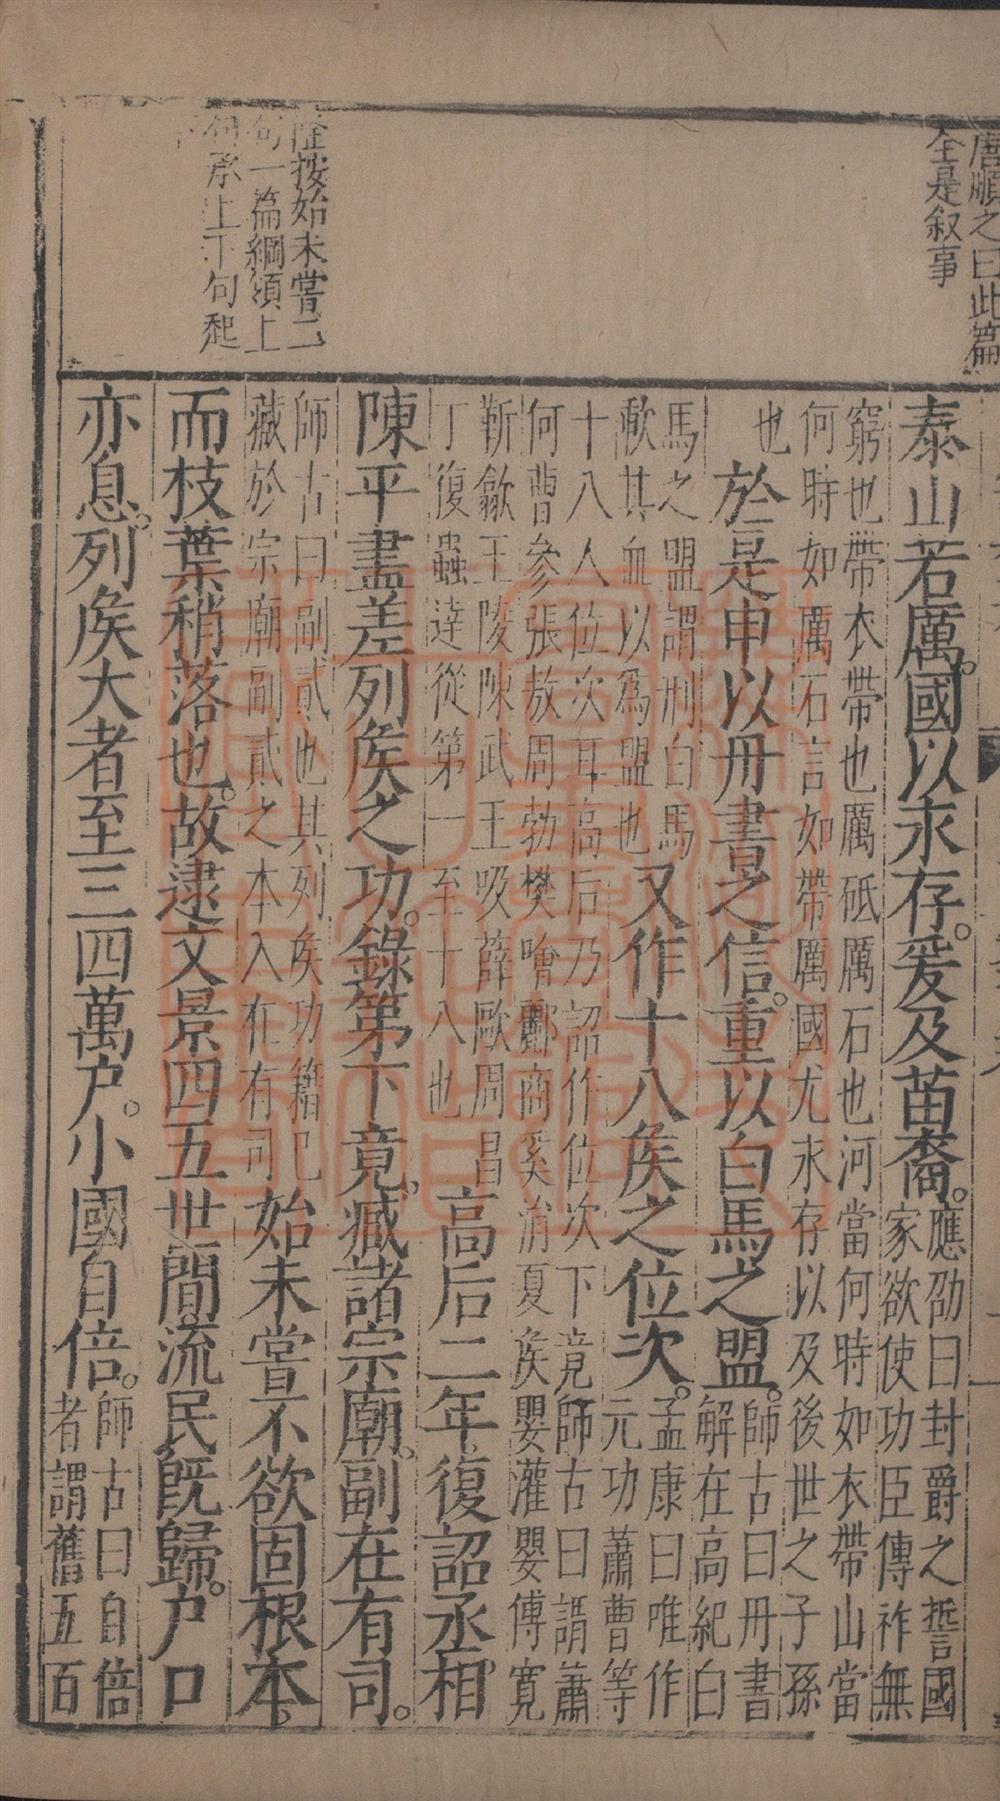 唐順之曰此篇
全是叙事
隆按始未嘗二
句一篇綱領上
句承上下句起
下
泰山若厲。國以永存。爰及苗裔。應劭曰封爵之誓國
家欲使功臣傳祚無
窮也帶衣帶也厲砥厲石也河當何時如衣帶山當
何時如厲石言如帶厲國尤永存以及後世之子孫
也於是申以丹書之信。重以白馬之盟。師古曰丹書
解在高紀白
馬之盟謂刑白馬
歃其血以爲盟也又作十八侯之位次。孟康曰唯作
元功蕭曹等
十八人位次耳高后乃詔作位次下竟師古曰謂蕭
何曹參張敖周勃樊噲酈商奚涓夏侯嬰灌嬰傅寬
靳歙王陵陳武王吸薛歐周昌
丁復蟲達從第一至十八也高后二年。復詔丞相
陳平盡差列侯之功。錄第下竟。臧諸宗廟。副在有司。
師古曰副貳也其列侯功籍已
藏於宗廟副貳之本入在有司始未嘗不欲固根本。
而枝葉稍落也。故逮文景四五世間流民旣歸。戶口
亦息。列侯大者至三四萬戶。小國自倍。師古曰自倍
者謂舊五百